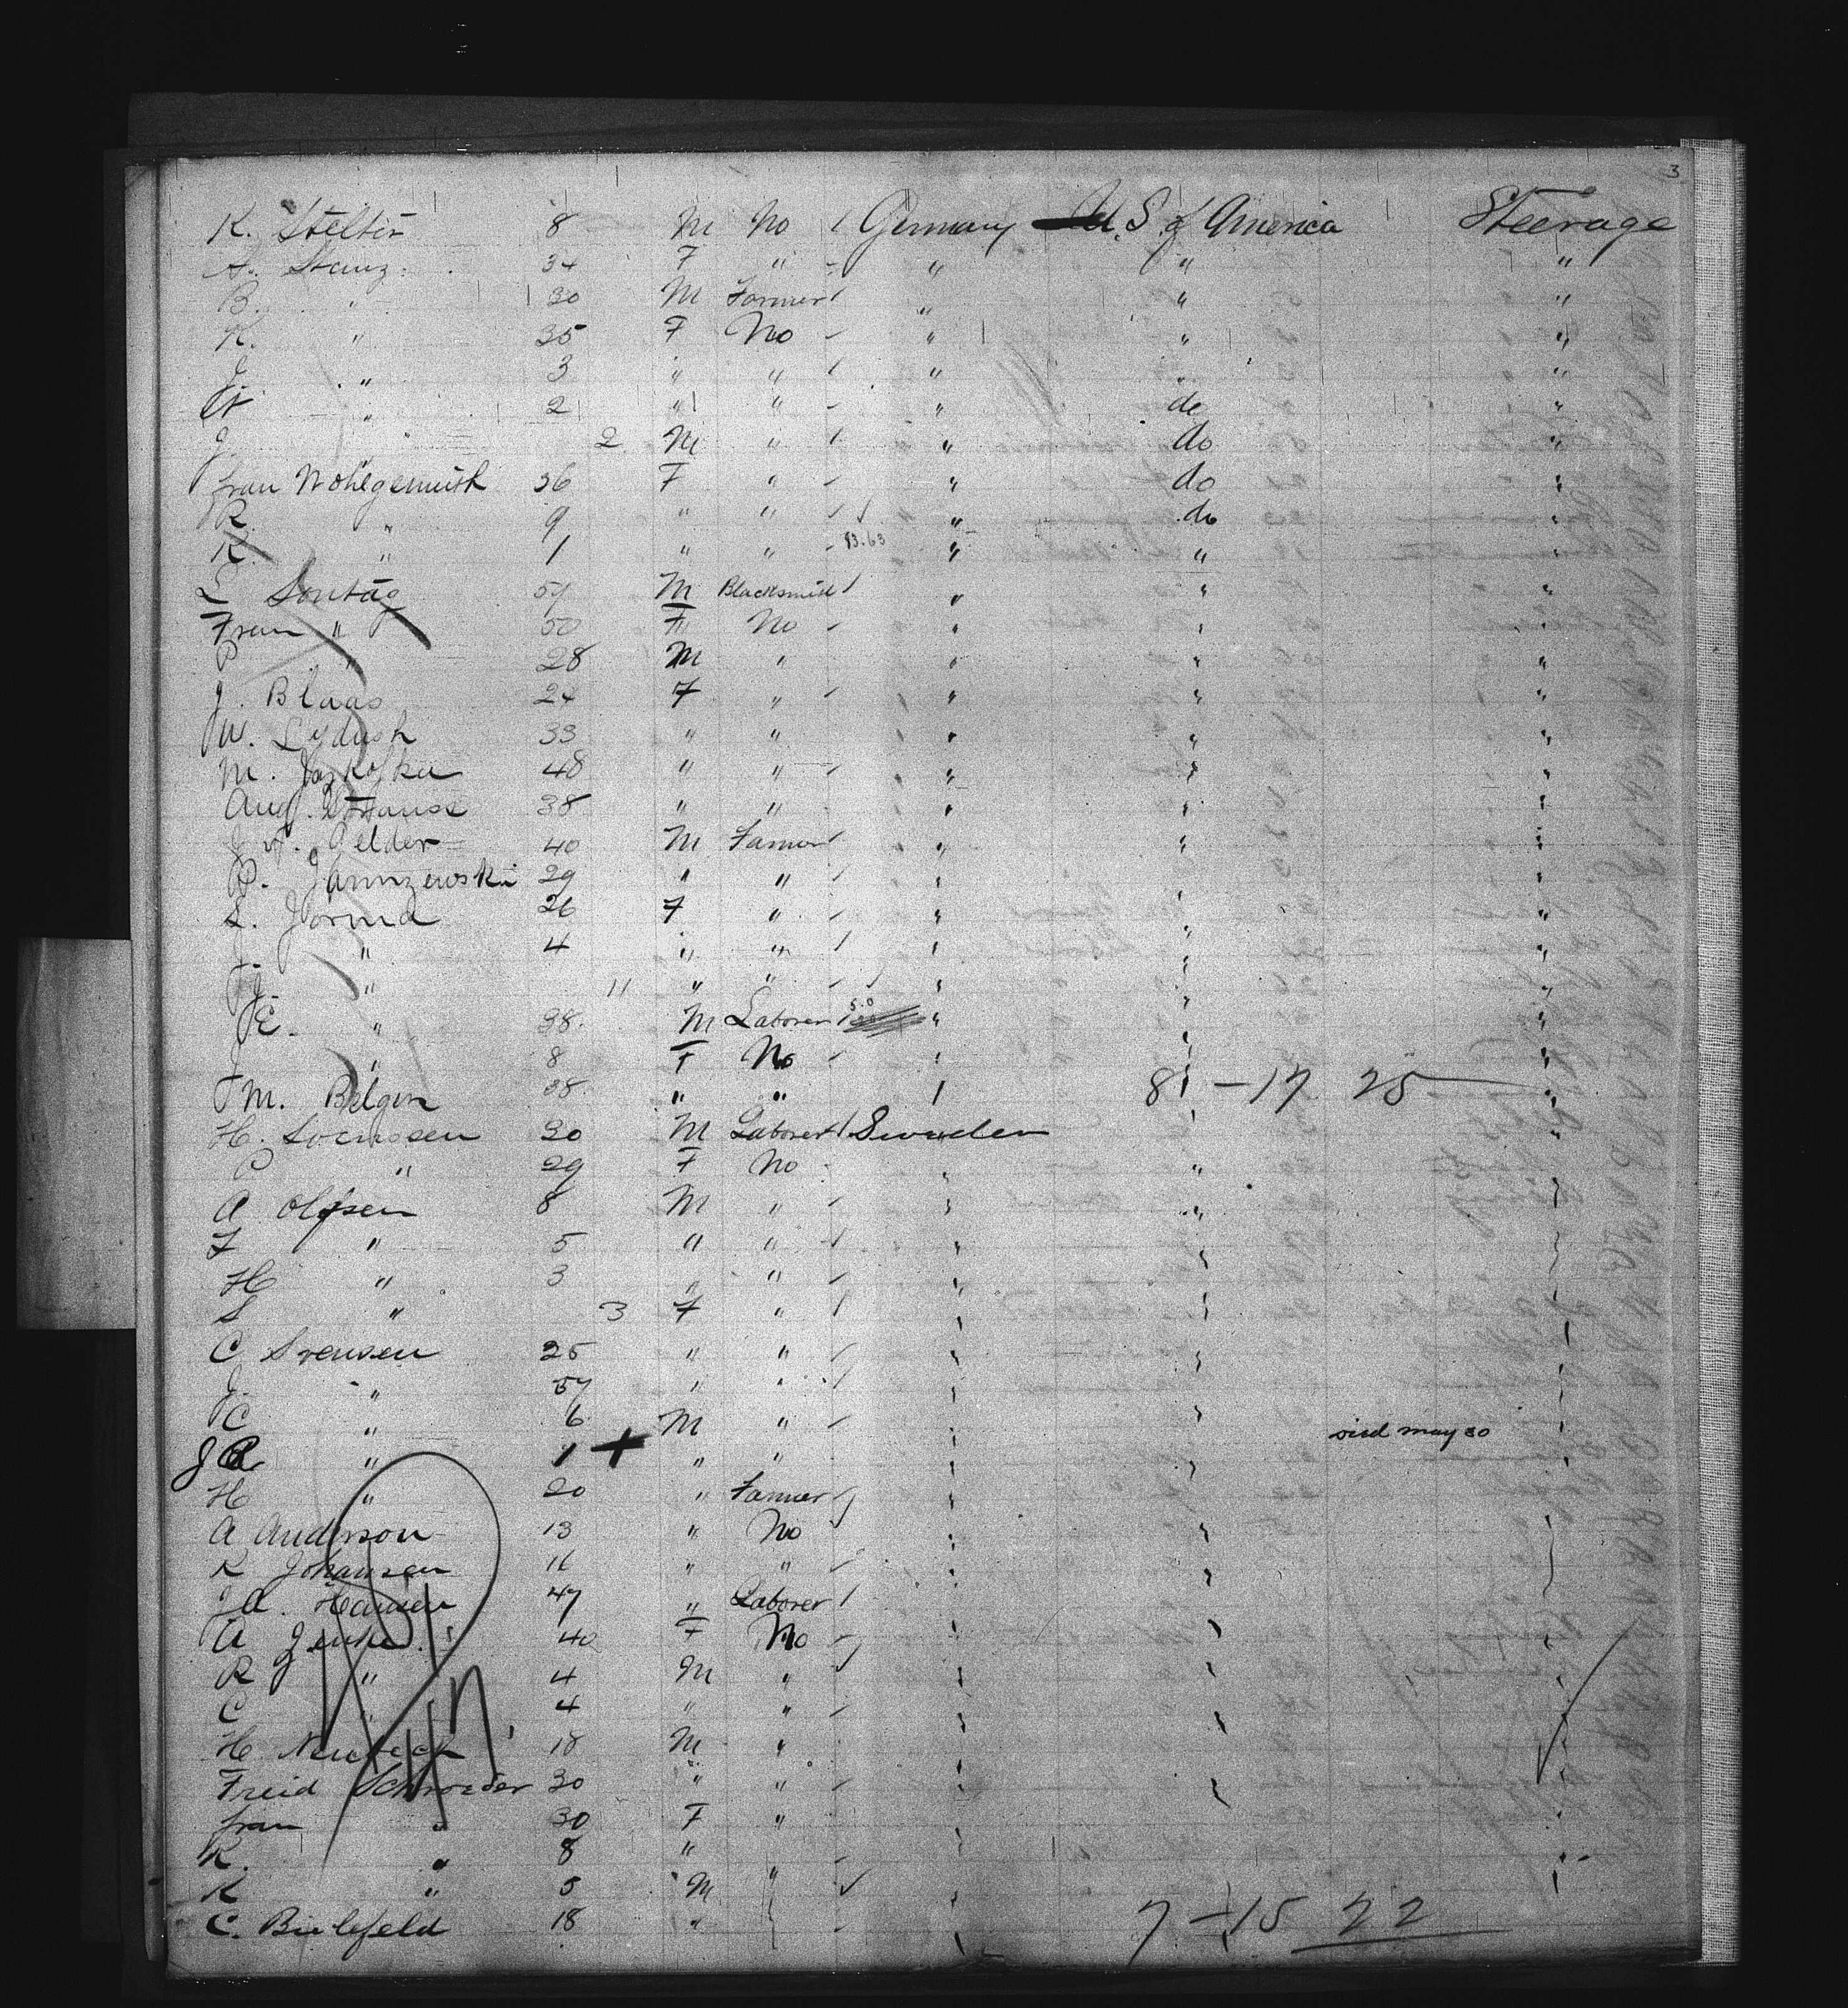 3
K. Stelter 8 M No / Germany U.S. of America Steerage
A. Stanz 34 F " " " "
B. " 30 M Farmer / " " "
K. " 35 F No " " "
J. " 3 " " / " " "
A " 2 " " " do "
J. " 2 M " / " do "
frau Wohlgemuth 36 F " " do "
R. " 9 " " " do "
K. " 1 " " 13.63 " " "
L Sontag 59 M Blacksmith / " " "
Frau " 50 F No " " "
P " 28 M " " " "
J. Blaas 24 F " " " "
W. Lydush 33 " " " " "
M. Jaskofka 48 " " " " "
Aug. Strauss 38 " " " " "
J. v. Gelder 40 M Farmer / " " "
P. Jannzewski 29 " " / " " "
L. Jorma 26 F " " " "
J. " 4 " " / " " "
J. " 11 " " " " "
E. " 38 M Laborer / 50 " " "
J " 8 F No " " "
M. Belgin 38 " " " 8 - 17 25 "
H. Svenssen 30 M Laborer / Sweden " "
C " 29 F No " " "
A Olfsen 8 M " " " "
F " 5 " " / " " "
H " 3 " " " " "
S " 3 F " / " " "
C Svensen 25 " " " " "
J. " 57 " " " " "
C " 6 M " " " "
J C " 1 + " " " " died may 30 "
H " 20 " Farmer " " "
A Anderson 13 " No " " "
K Johansen 11 " " " " "
J A. Hansen 47 " Laborer / " " "
A Jenke 40 F No " " "
R " 4 M " " " "
C " 4 " " " " "
H Neubeck 18 M " " " "
Freid Schroeder 30 " " " " "
frau " 30 F " " " "
K. " 8 " " " " "
K " 5 M " " " "
C. Bielefeld 18 " " " 7 - 15 22